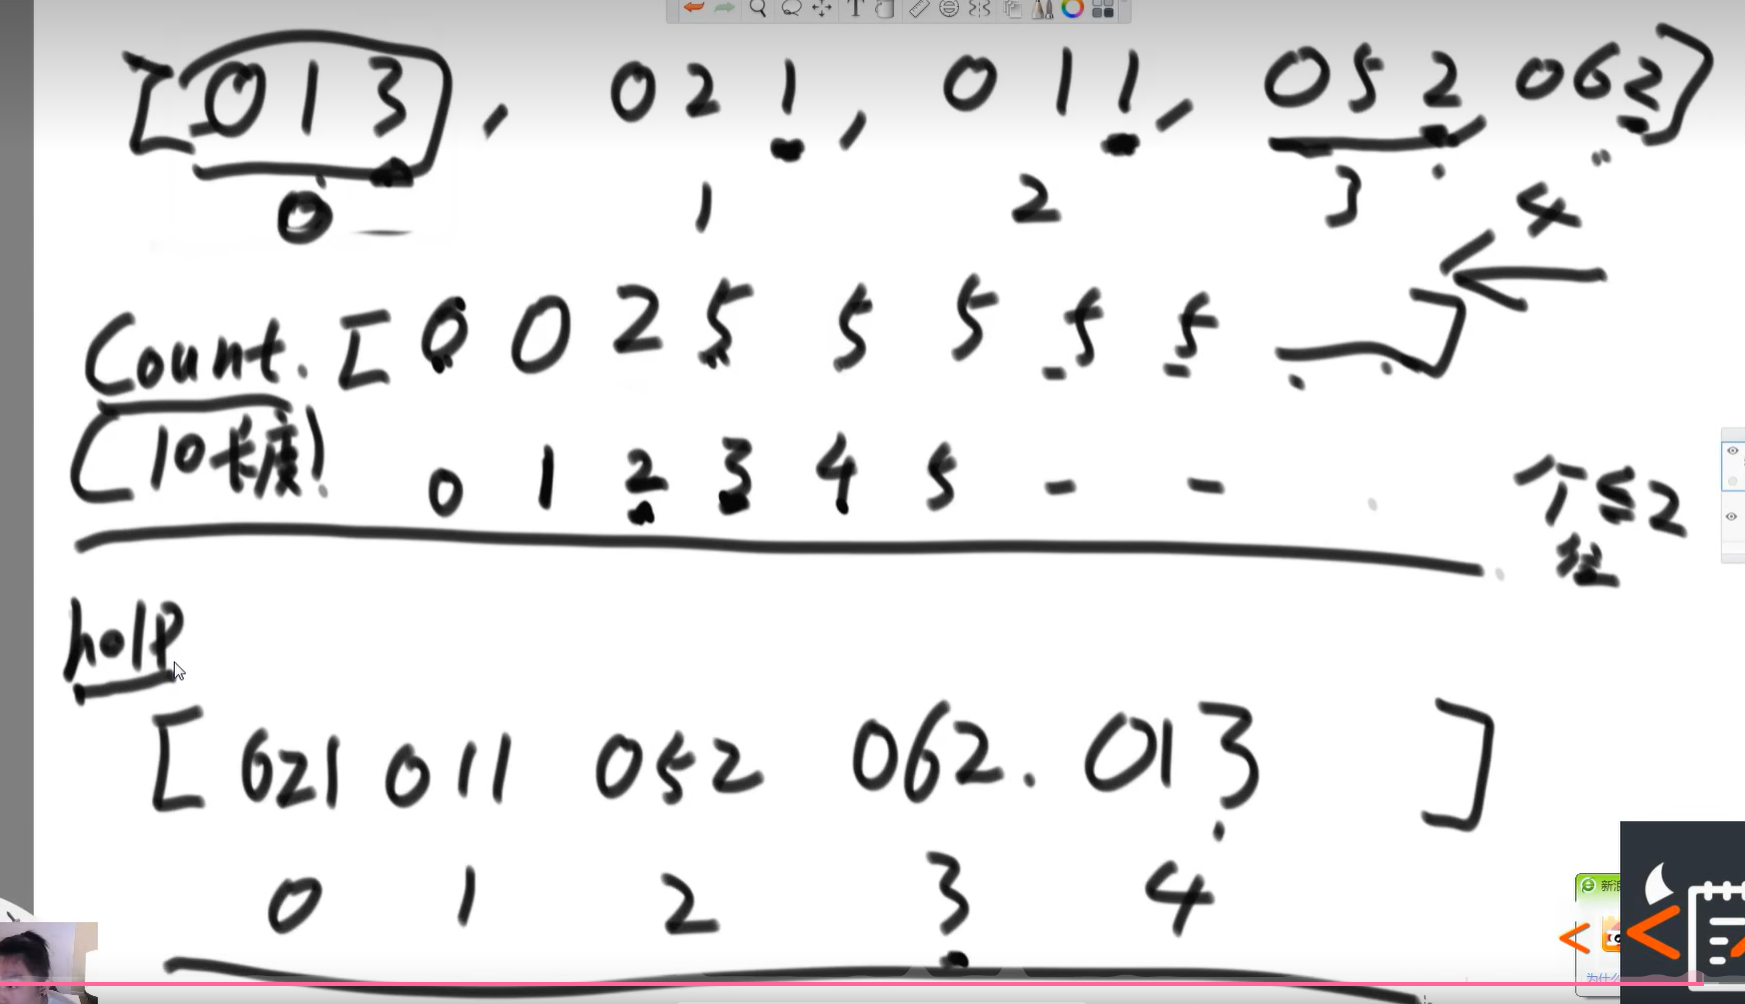 [013, 021, 011, 052 062]
0 1 2 3 4
Count. [0 0 2 5 5 5 5 5 ]
(10长度) 0 1 2 3 4 5 - -
个≤2
help
[021 011 052 062. 013 ]
0 1 2 3 4
为什么